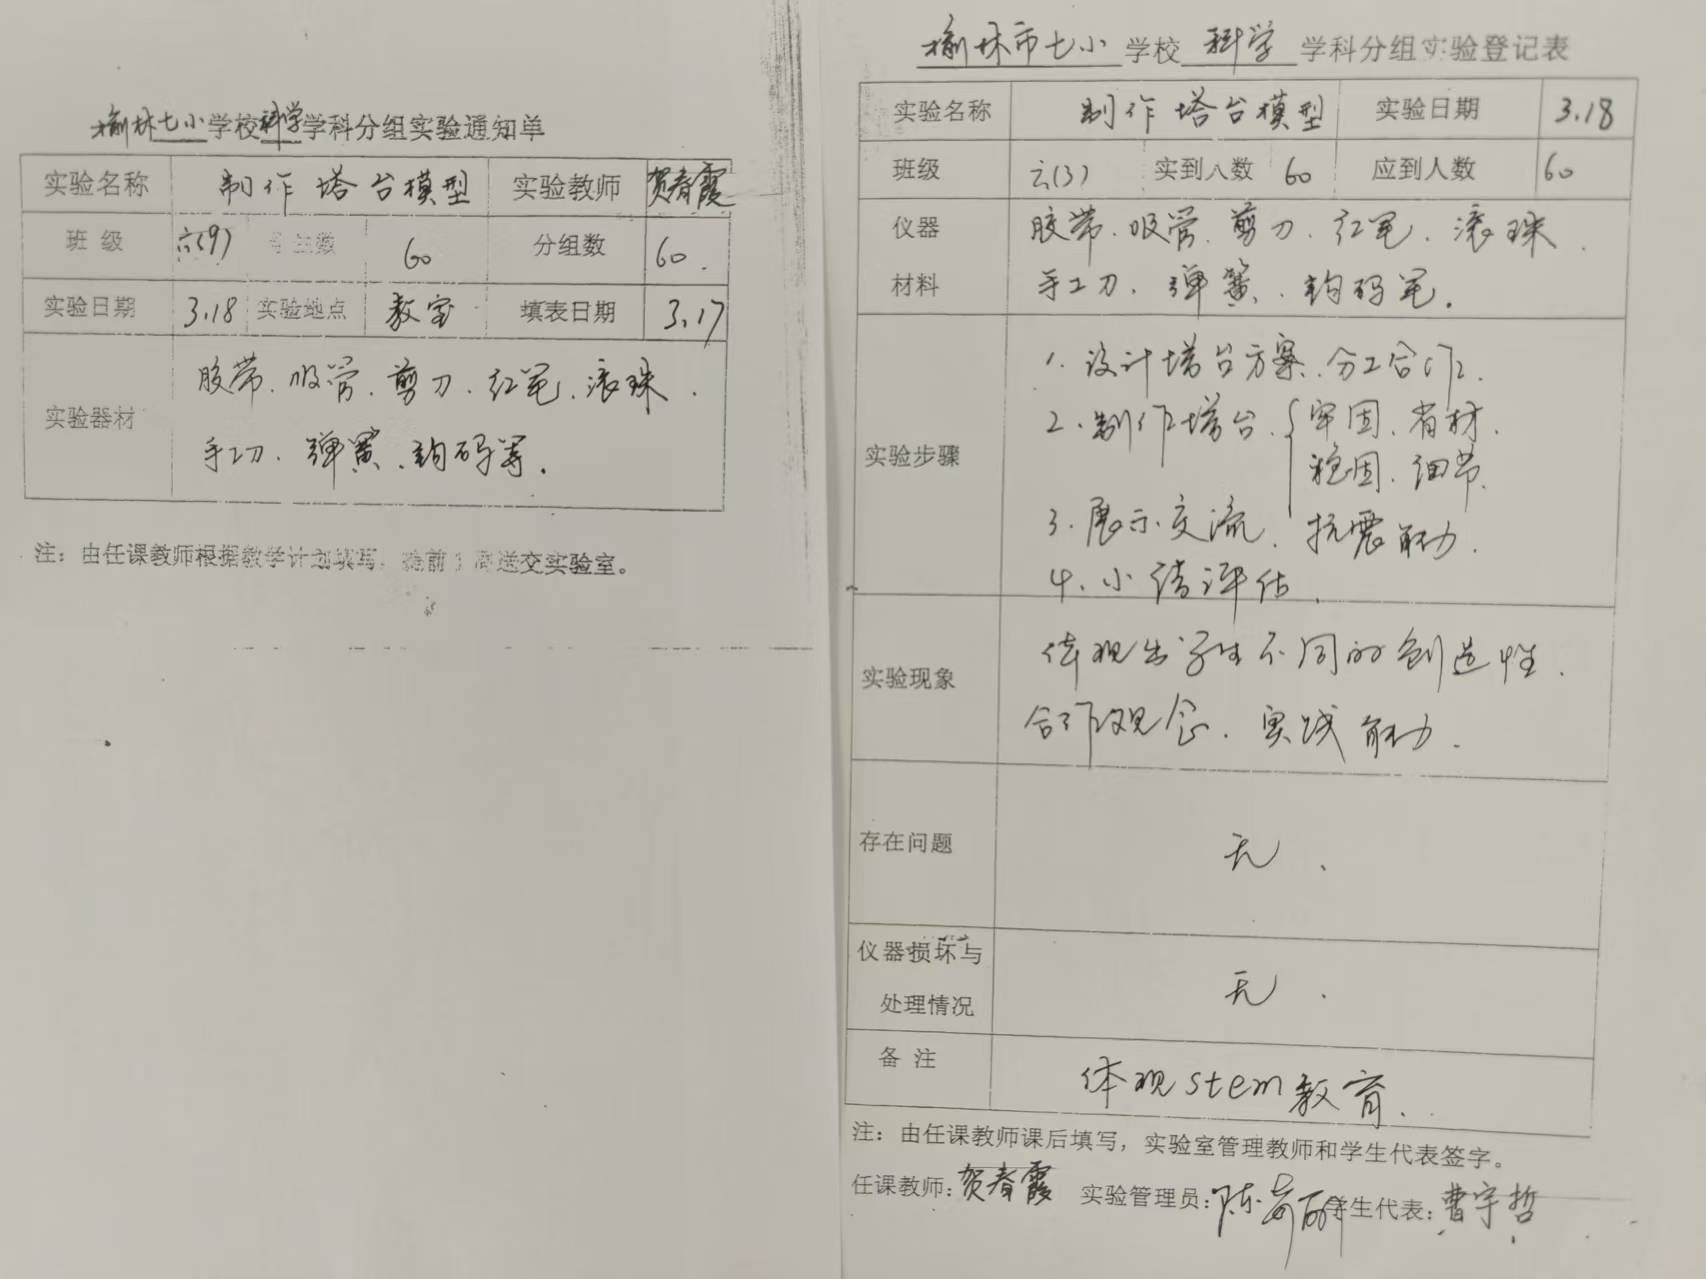 榆林七小学校科学学科分组实验通知单
实验名称 制作塔台模型 实验教师 贺春霞
班 级 六(9) 学生数 60 分组数 60.
实验日期 3.18 实验地点 教室 填表日期 3.17
实验器材
胶带、吸管、剪刀、红笔、滚珠、
手工刀、弹簧、钩码等.
注：由任课教师根据教学计划填写，提前1周送交实验室。
榆林市七小学校 科学 学科分组实验登记表
实验名称 制作塔台模型 实验日期 3.18
班级 六(3) 实到人数 60 应到人数 60
仪器
材料
胶带、吸管、剪刀、红笔、滚珠、
手工刀、弹簧、钩码笔.
实验步骤
1. 设计塔台方案、分工合作.
2. 制作塔台. 牢固、省材、
稳固、细节.
3. 展示交流. 抗震能力.
4. 小结评估.
实验现象
体现出学生不同的创造性.
合作观念、实践能力.
存在问题 无.
仪器损坏与
处理情况
无.
备 注 体现stem教育.
注：由任课教师课后填写，实验室管理教师和学生代表签字。
任课教师：贺春霞 实验管理员：陈 学生代表：曹宇哲